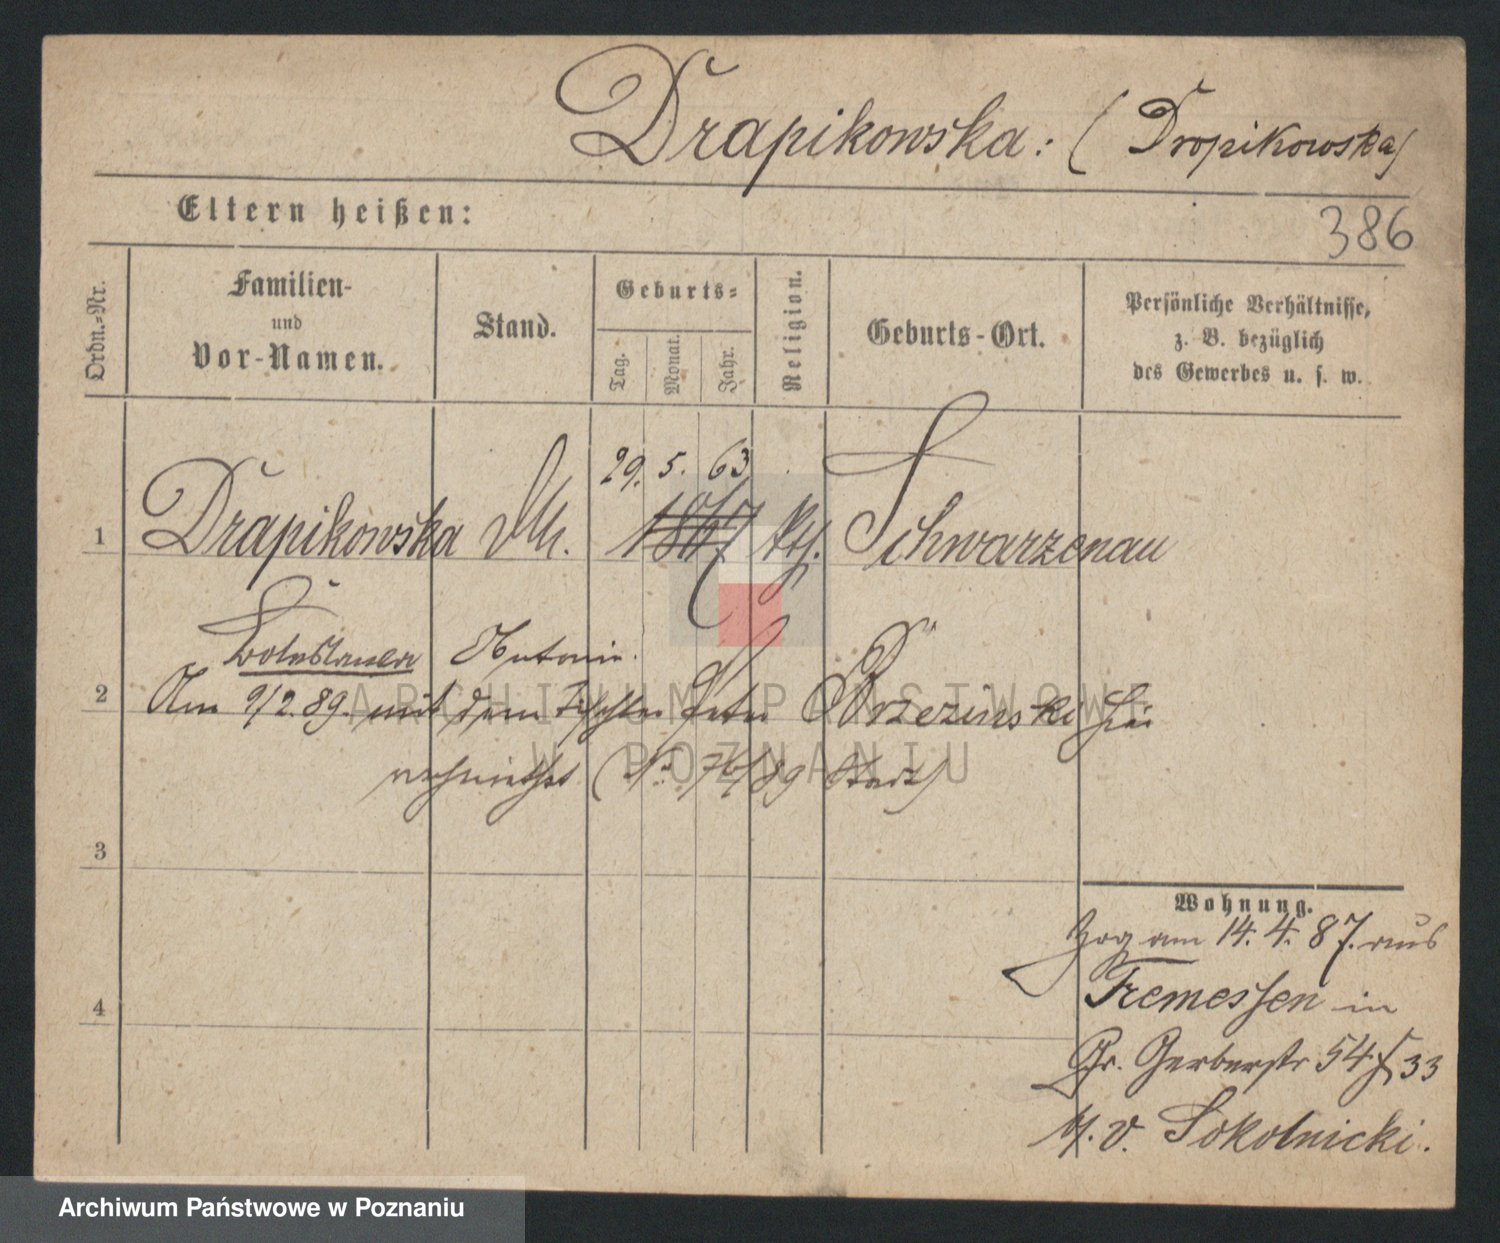 Drapikowska: (Dropikowska)
Eltern heißen:
386
Ordn.-Nr.
Familien-
und
Vor-Namen.
Stand.
Geburts-
Tag.
Monat.
Jahr.
Religion.
Geburts-Ort.
Persönliche Verhältnisse,
z. B. bezüglich
des Gewerbes u. s. w.
29. 5. 63
1 Drapikowska 1867 kth. Schwarzenau
Antonie.
2 Am 9/2. 89. mit dem Tischler Peter Brzezinski hier
(No. 76/89 Stdt)
3
Wohnung.
Zog am 14. 4. 87. aus
4
Tremessen in
Gr. Gerberstr 54 33
b/. v. Sokolnicki.
ARCHIWUM PAŃSTWOWE
W POZNANIU
Archiwum Państwowe w Poznaniu